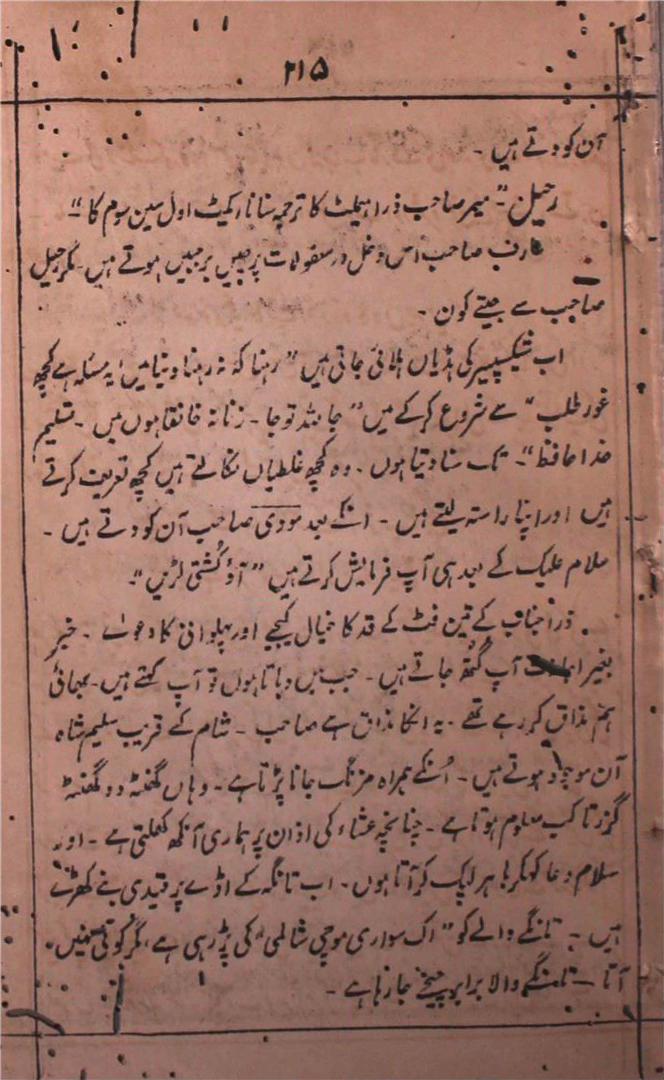 ۲۱۵
آن کودتے ہیں -
رحیل "- میر صاحب ذرا ہیملٹ کا ترجمہ سنانا ایکٹ اول سین سوم کا "-
عارف صاحب اس دخل در معقولات پر چیں برجبیں ہوتے ہیں - مگر رحیل
صاحب سے جیتے کون -
اب شیکسپیر کی ہڈیاں ہلائی جاتی ہیں " رہنا کہ نہ رہنا دنیا میں یہ مسئلہ ہے کچھ
غور طلب " سے شروع کرکے میں " جا بیٹھ تو جا - زنانہ خانقاہوں میں - تسلیم
خدا حافظ "- تک سنا دیتا ہوں - وہ کچھ غلطیاں نکالتے ہیں کچھ تعریف کرتے
ہیں اور اپنا راستہ لیتے ہیں - انکے بعد مودی صاحب آن کودتے ہیں -
سلام علیک کے بعد ہی آپ فرمایش کرتے ہیں " آؤ کُشتی لڑیں "-
ذرا جناب کے تین فٹ کے قد کا خیال کیجیے اور پہلوانی کا دعوےٰ - خیر
بغیر اجازت آپ گُتھ جاتے ہیں - جب میں دباتا ہوں تو آپ کہتے ہیں - بھائی
ہم مذاق کر رہے تھے - یہ انکا مذاق ہے صاحب - شام کے قریب سلیم شاہ
آن موجود ہوتے ہیں - اُنکے ہمراہ مزنگ جانا پڑتا ہے - وہاں گھنٹہ دو گھنٹہ
گزرتا کب معلوم ہوتا ہے - چنانچہ عشاء کی اذان پر ہماری آنکھ کھلتی ہے - اور
سلام دعا کہکر باہر لپک کر آتا ہوں - اب تانگہ کے اڈے پر قیدی بنے کھڑے
ہیں - تانگے والے کو " اک سواری موچی شالمی " کی پڑ رہی ہے ، مگر کوئی نہیں
آتا - تانگے والا برابر چیخے جا رہا ہے -